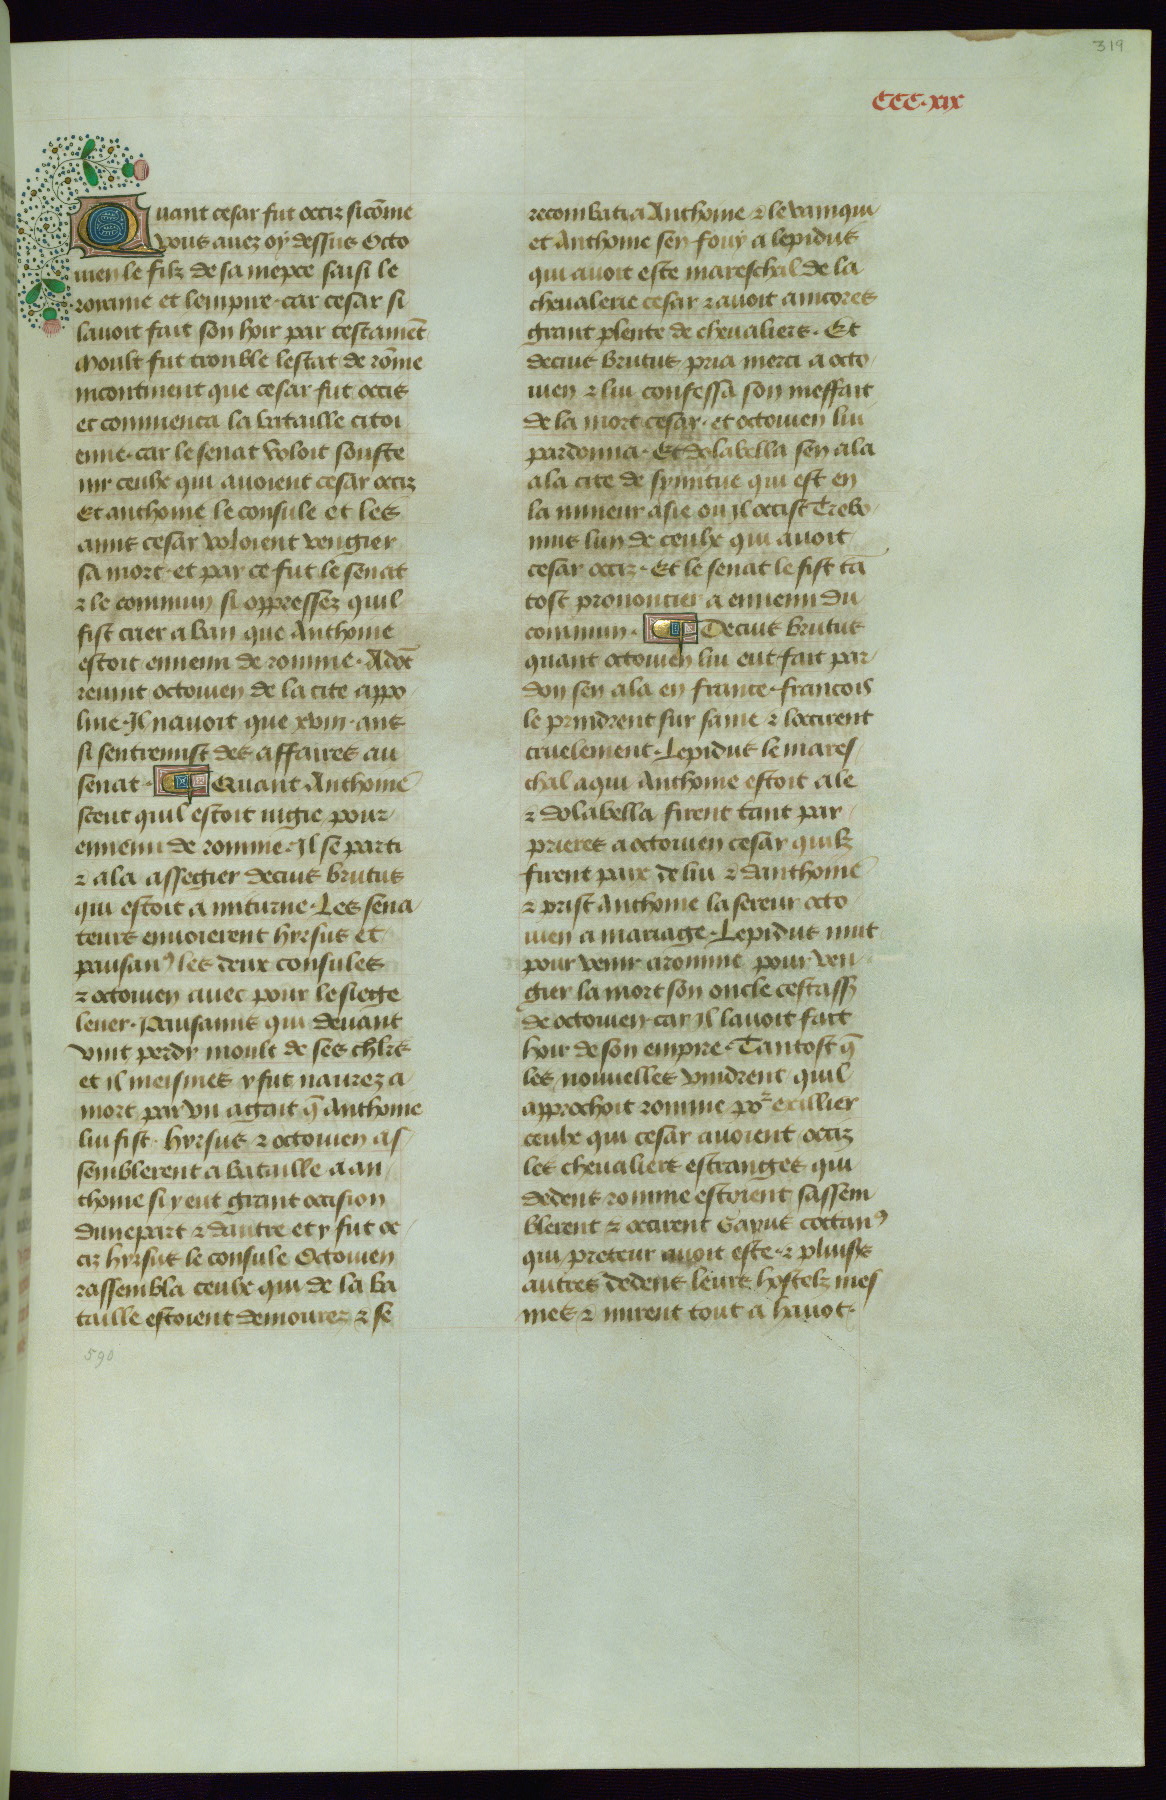 319
CCC·xix
Quant cesar fut occiz si cõme
vous auez oÿ dessus Octo
uien le filz de sa niepce saisi le
romme et lempire · car cesar si
lauoit fait son hoir par testamẽt
Moult fut trouble lestat de rõme
incontinent que cesar fut occis
et commenca la bataille citoi
enne · car le senat voloit souste
nir ceulx qui auoient cesar occiz
Et anthoine le consule et les
amis cesar voloient vengier
sa mort · et par ce fut le senat
⁊ le commun si oppressez quil
fist crier a ban que Anthoine
estoit ennemi de romme · Adõt
reuint octouien de la cite appo
line · Il nauoit que xviii · ans
si sentremist des affaires au
senat · Quant Anthoine
sceut quil estoit iugie pour
ennemi de romme · Il se parti
⁊ ala assegier decius brutus
qui estoit a miturne · Les sena
teurs enuoierent hyrsus et
pausanꝰ les deux consules
⁊ octouien auec pour le siege
leuer · Pausanus qui deuant
vint perdy moult de ses chlrs
et il meismes y fut naurez a
mort par vn agait q̃ Anthoine
lui fist · hyrsus ⁊ octouien as
semblerent a bataille a an
thoine si y eut grant occision
dune part ⁊ dautre et y fut oc
ciz hyrsus le consule Octouien
rassembla ceulx qui de la ba
taille estoient demourez ⁊ se
590
recombati a Anthoine ⁊ le vainqui
et Anthoine sen fouÿ a lepidus
qui auoit este mareschal de la
cheualerie cesar ⁊ auoit aincores
grant plente de cheualiers · Et
decius brutus pria merci a octo
uien ⁊ lui confessa son meffait
de la mort cesar · et octouien lui
pardonna · Et dolabella sen ala
a la cite de symitue qui est en
la mineur asie ou il occist Trebo
nius lun de ceulx qui auoit
cesar occiz · Et le senat le fist tã
tost prononcier a ennemi du
commun · Decius brutus
quant octouien lui eut fait par
don sen ala en france · francois
le prindrent sur saine ⁊ loccirent
cruelement · Lepidus le mares
chal a qui Anthoine estoit ale
⁊ dolabella firent tant par
prieres a octouien cesar quilz
firent paix de lui ⁊ danthoine
⁊ prist Anthoine la sereur octo
uien a mariage · Lepidus mut
pour venir a romme pour ven
gier la mort son oncle
de octouien car il lauoit fait
hoir de son empire · Tantost q̃
les nouuelles vindrent quil
approchoit romme po͛ exillier
ceulx qui cesar auoient occiz
les cheualiers estranges qui
dedens romme estoient sassem
blerent ⁊ occirent Gayus cottanꝰ
qui preteur auoit este · ⁊ pluisrs
autres dedens leurs hostelz mes
mes ⁊ mirent tout a hauot ·